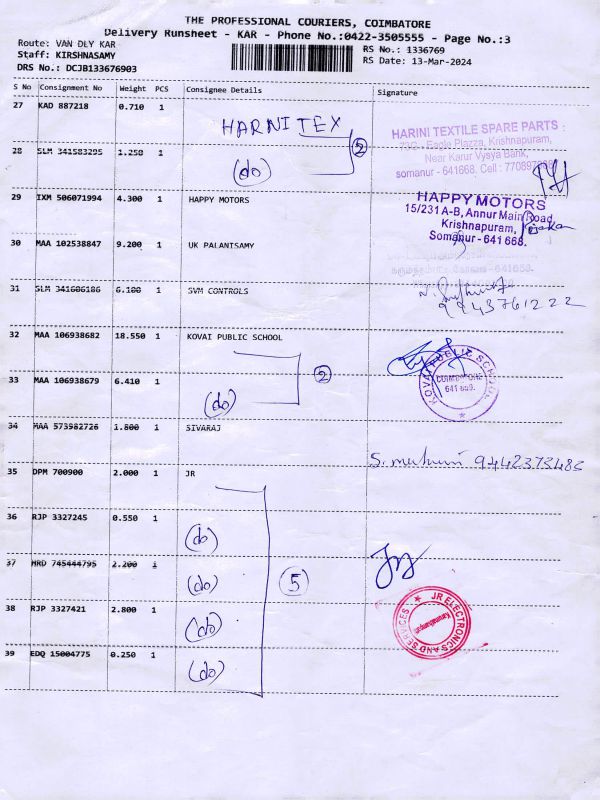 THE PROFESSIONAL COURIERS, COIMBATORE
Delivery Runsheet - KAR - Phone No.:0422-3505555 - Page No.:3
Route: VAN DLY KAR
Staff: KIRSHNASAMY
DRS No.: DCJB133676903
RS No.: 1336769
RS Date: 13-Mar-2024
S No Consignment No Weight PCS Consignee Details Signature
27 KAD 887218 0.710 1 HARNI TEX
HARINI TEXTILE SPARE PARTS
Eagle Plazza, Krishnapuram,
Near Karur Vysya Bank,
somanur - 641668, Cell :
28 SLM 341583295 1.250 1 (do) 2
29 IXM 506071994 4.300 1 HAPPY MOTORS
HAPPY MOTORS
15/231 A-B, Annur Main Road,
Krishnapuram,
Somanur - 641 668.
30 MAA 102538847 9.200 1 UK PALANISAMY
31 SLM 341606186 6.100 1 SVM CONTROLS
9943761222
32 MAA 106938682 18.550 1 KOVAI PUBLIC SCHOOL
KOVAI PUBLIC SCHOOL
COIMBATORE
641 659.
33 MAA 106938679 6.410 1 (do) 2
34 MAA 573982726 1.800 1 SIVARAJ
9442373483
35 DPM 700900 2.000 1 JR
36 RJP 3327245 0.550 1 (do)
37 MRD 745444795 2.200 1 (do) 5
38 RJP 3327421 2.800 1 (do)
JR ELECTRONICS AND SERVICES
39 EDQ 15004775 0.250 1 (do)